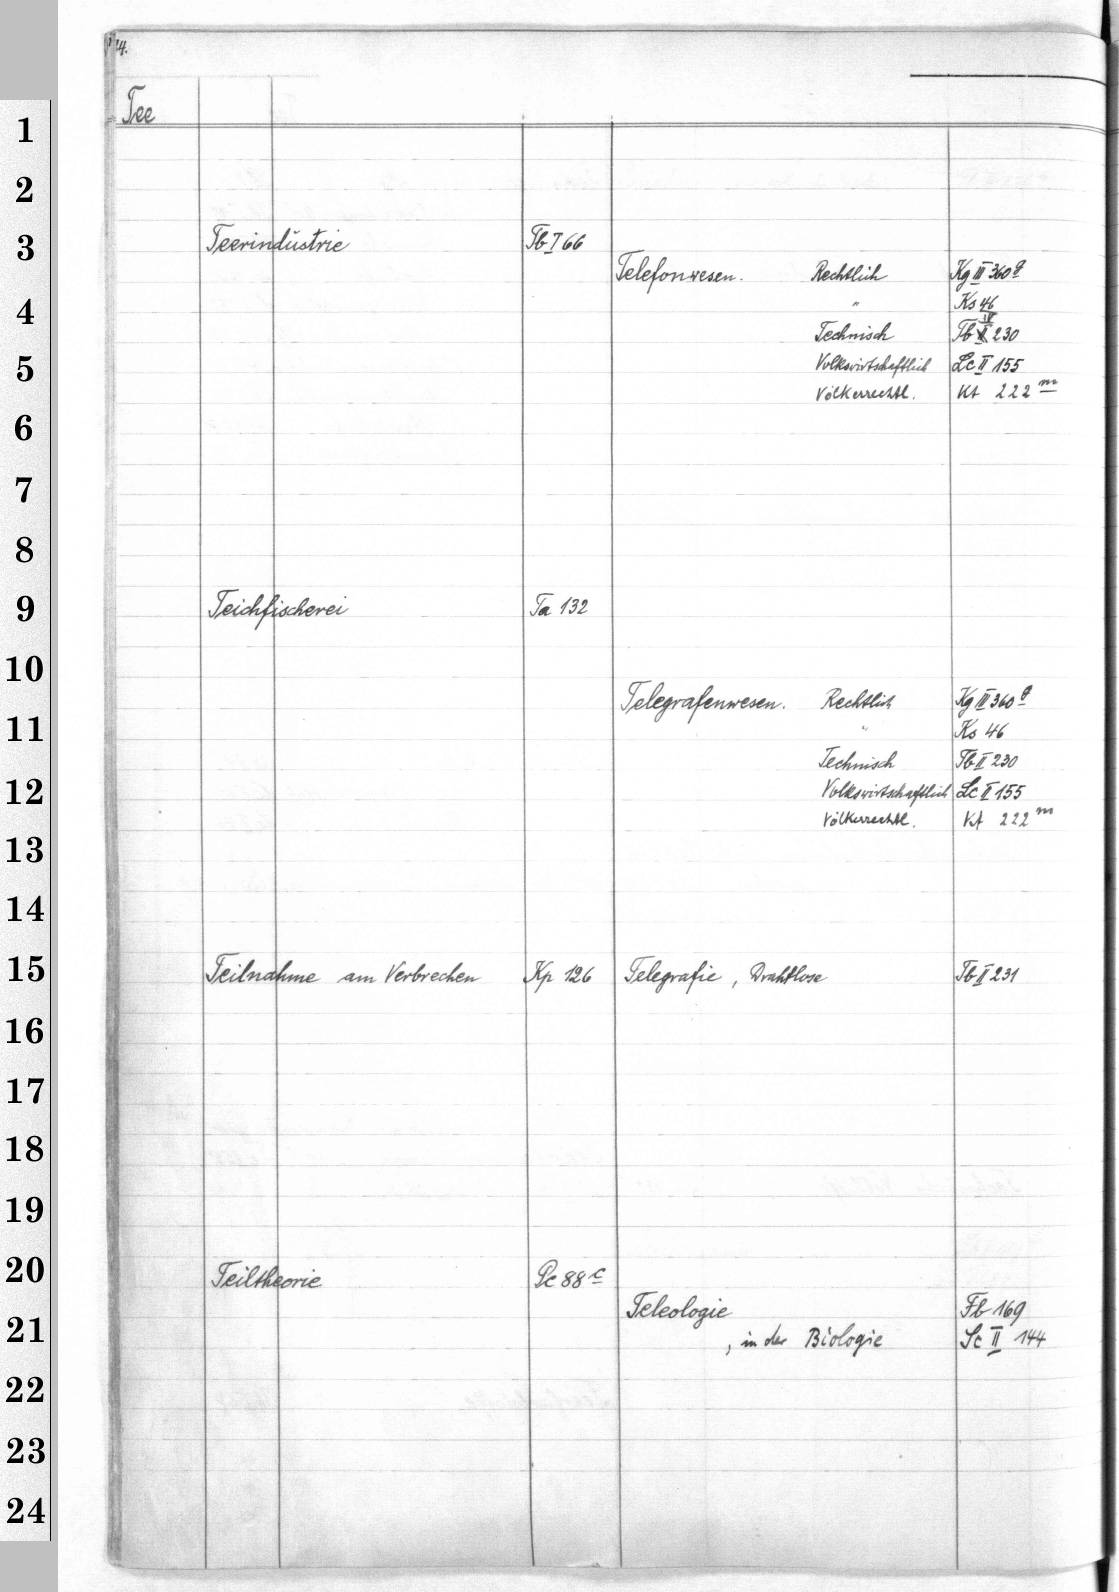 1
2
3
4
5
6
7
8
9
10
11
12
13
14
15
16
17
18
19
20
21
22
23
24
Tee
Teerindustrie Tb I 66
Teichfischerei Ta 132
Teilnahme am Verbrechen Kp 126
Teiltheorie Pc 88 c
Telefonwesen. Rechtlich Kg III 360 q
" Ks 46
Technisch Tb II 230
Volkswirtschaftlich Lc II 155
Völkerrechtl. Kt 222 m
Telegrafenwesen. Rechtlich Kg III 360 q
" Ks 46
Technisch Tb II 230
Volkswirtschaftlich Lc II 155
Völkerrechtl. Kt 222 m
Telegrafie, Drahtlose Tb II 231
Teleologie Fb 169
, in der Biologie Sc II 144